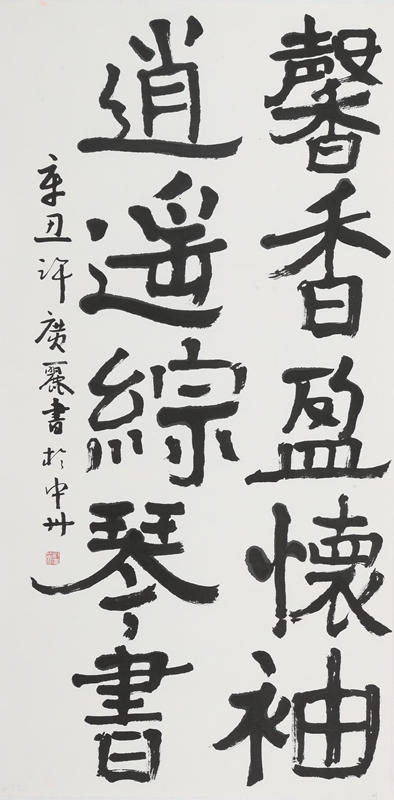 馨香盈懷袖
逍遥綜琴書
辛丑許廣麗書於中州